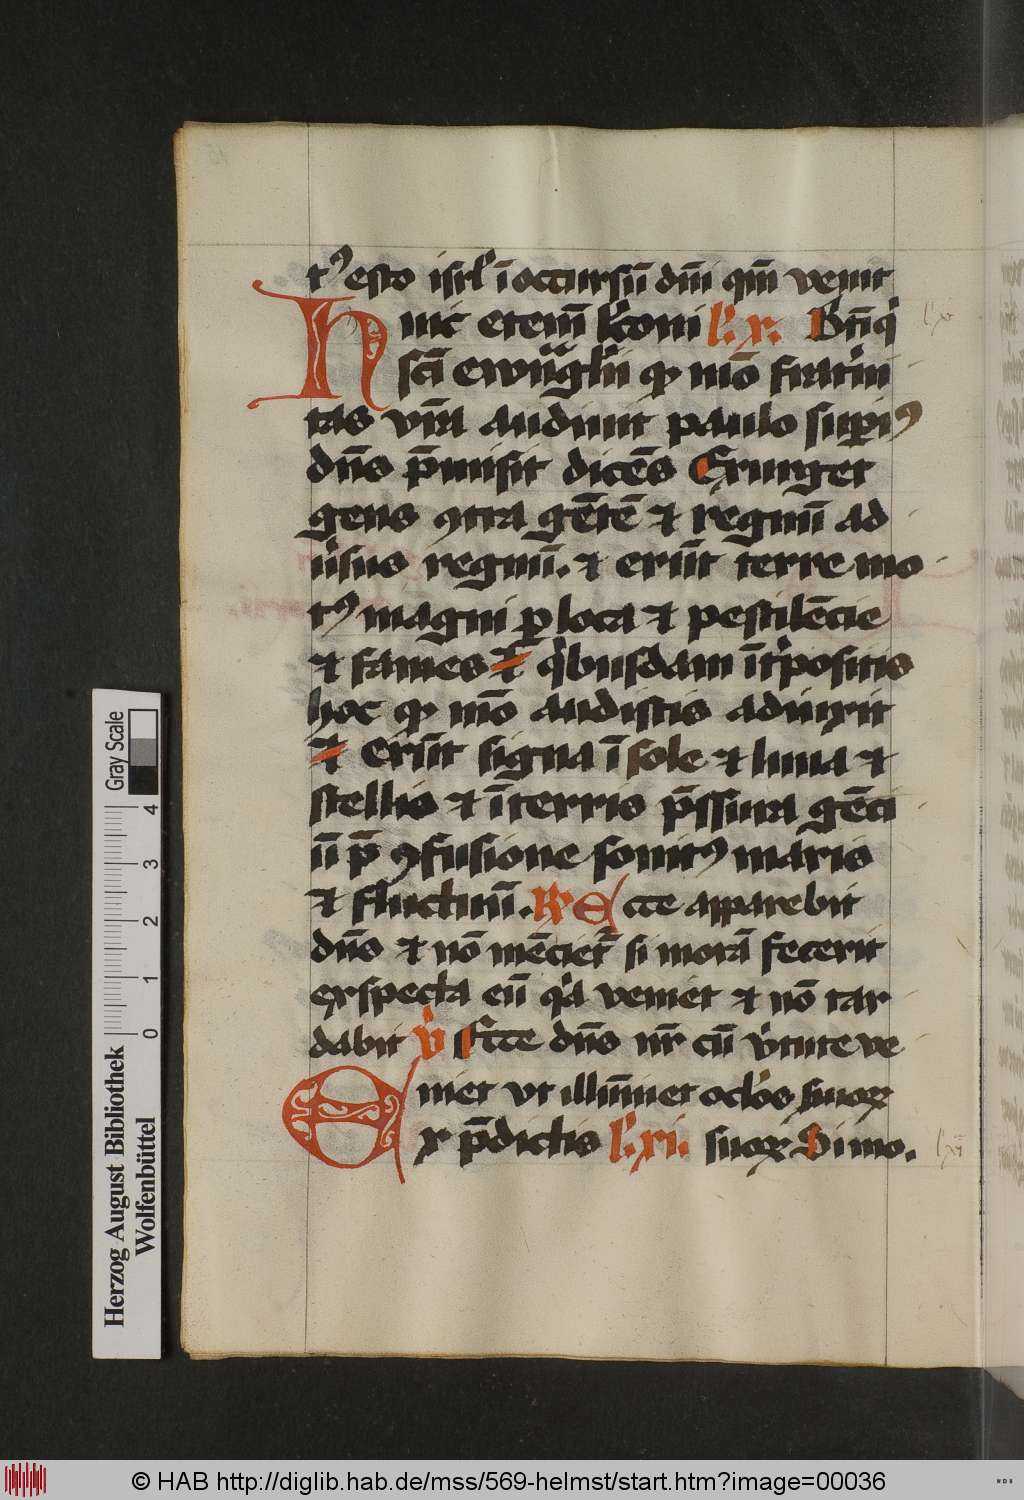 tꝰ esto isrl̕ ī occursū dn̄i qm̄ venit
Huic etem̄ lc̄oni l̕. x. Br̄ tiqᷓ l' x
scī ewāgl̕ii qͥ mō frat̕ni
tas vr̄a audiuit paulo superiꝰ
dn̄s p̄misit dicēs Exurget
gens ꝯtra gētē et regnū ad
u̕sus regnū. et erūt terre mo
tꝰ magni ꝑ loca et pestilēcie
et fames et qͥbusdam īt̕positis
hoc qͥ mō audistis adiūxit
et erūt signa ī sole et luna et
stellis et ī terris p̄ssura gēci
ū p̄ ꝯfusione sonitꝰ maris
et fluctuū. R Ecce apparebit
dn̄s et nō mēciet̕ si morā fecerit
exspecta eū qͥa veniet et nō tar
dabit v̕ Ecce dn̄s nr̄ cū v̕tute ve
niet vt illūinet oclōs suoꝝ
Ex p̄dictis l̕. xi. suoꝝ Dimo. l' xi
Herzog August Bibliothek
Wolfenbüttel
Gray Scale
0 1 2 3 4
© HAB http://diglib.hab.de/mss/569-helmst/start.htm?image=00036